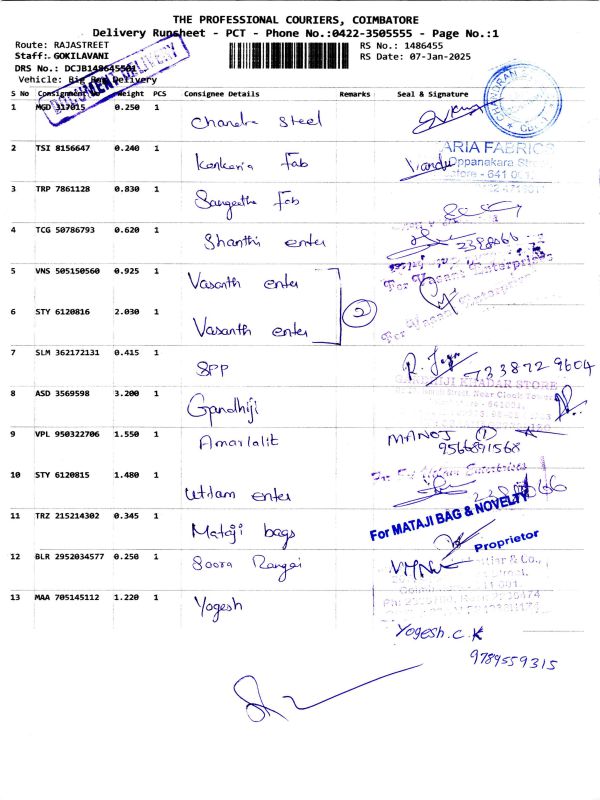 THE PROFESSIONAL COURIERS, COIMBATORE
Delivery Runsheet - PCT - Phone No.:0422-3505555 - Page No.:1
Route: RAJASTREET
RS No.: 1486455
Staff: GOKILAVANI
RS Date: 07-Jan-2025
DRS No.:
Vehicle: Big Bag Delivery
DOCUMENT DELIVERY
S No Consignment No Weight PCS Consignee Details Remarks Seal & Signature
1 MGD 317015 0.250 1 Chandra Steel
2 TSI 8156647 0.240 1 Kankaria Fab
ARIA FABRICS
Oppanakara
- 641 001
3 TRP 7861128 0.830 1 Sangeetha Fab
4 TCG 50786793 0.620 1 Shanthi enter
5 VNS 505150560 0.925 1 Vasanth enter
For Vasant Enterprises
6 STY 6120816 2.030 1 Vasanth enter
2
For Vasant Enterprises
7 SLM 362172131 0.415 1 SPP
7338729604
8 ASD 3569598 3.200 1 Gandhiji
KHADAR STORE
Near Clock Tower
9 VPL 950322706 1.550 1 Amarlalit MANOJ 1
9566891568
10 STY 6120815 1.480 1 Uttam enter
Enterprises
11 TRZ 215214302 0.345 1 Mataji bags
For MATAJI BAG & NOVELTY
Proprietor
12 BLR 2952034577 0.250 1 Soora Rangai
& Co.,
13 MAA 705145112 1.220 1 Yogesh
Yogesh.C.K
9789559315